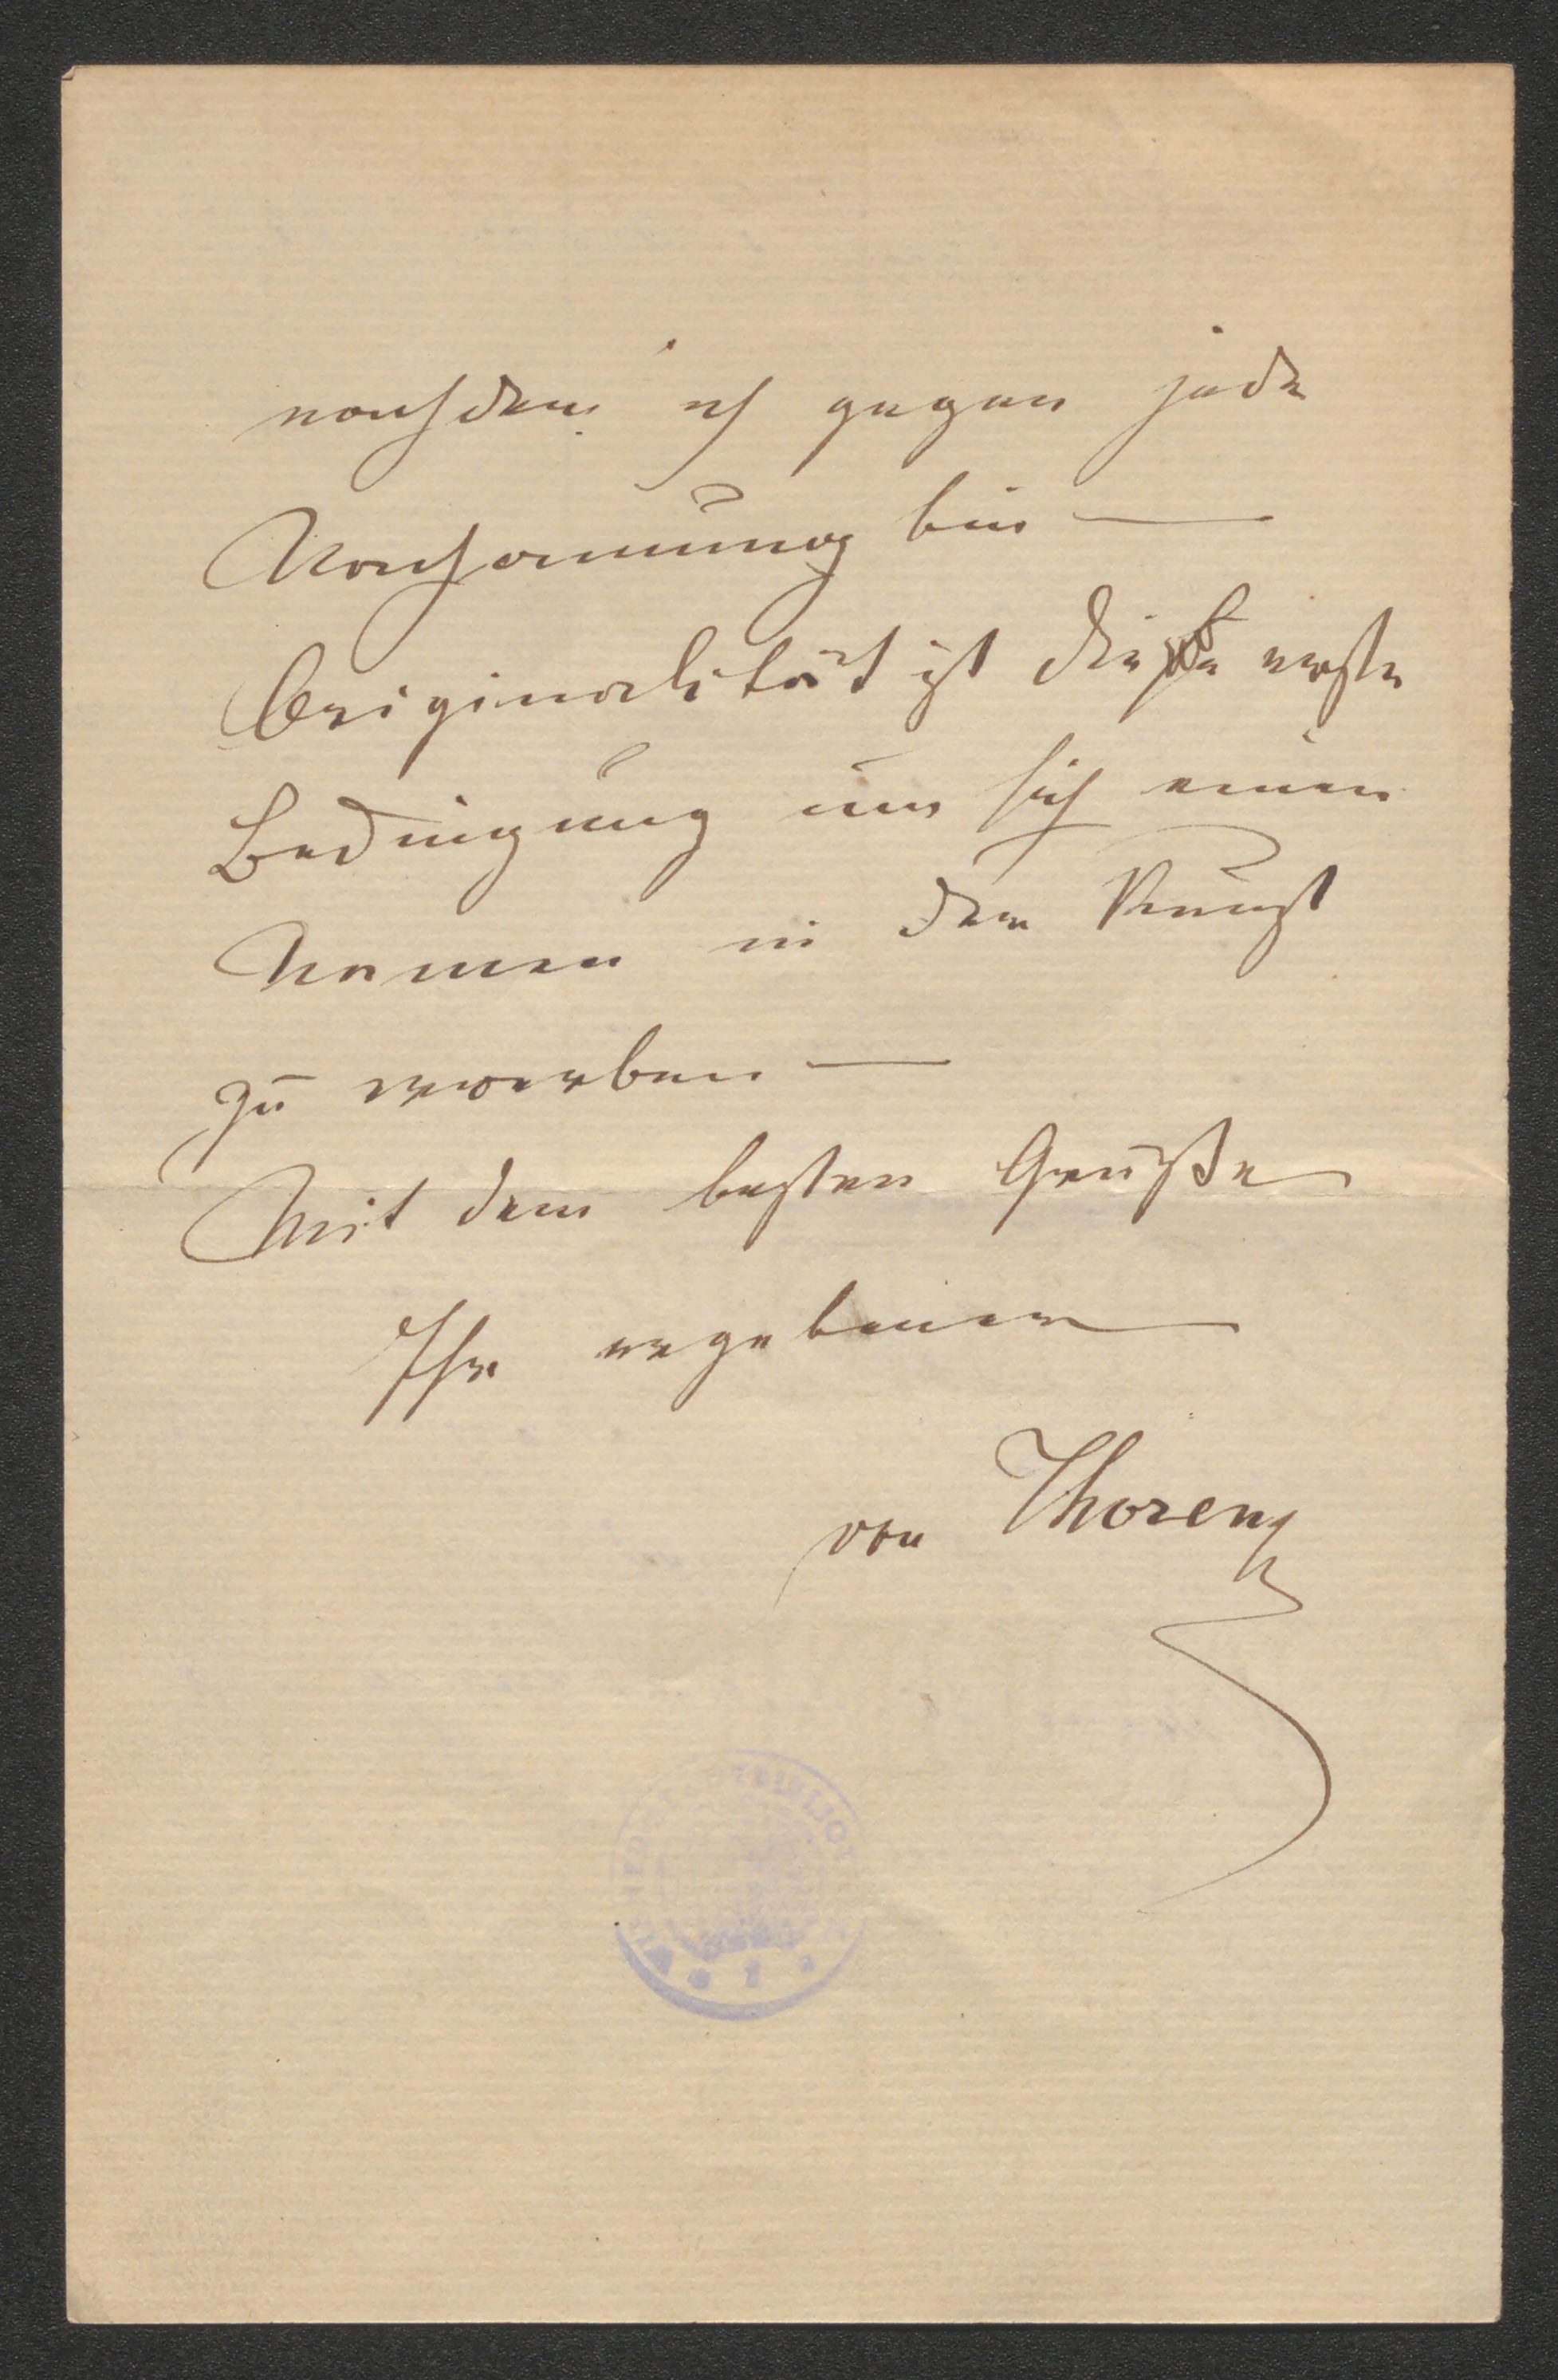 nachdem ich gegen jede
Nachamung bin —
Originalität ist die erste
Bedingung um sich einen
Namen in der Kunst
zu erwerben —
Mit dem besten Gruße
Ihr ergebener
von Thoren